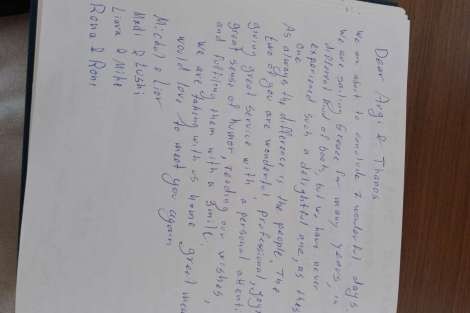 Dear Argi & Thanos
We are about to conclude 7 wonderful days.
We are sailing Greece for many years, in
different kind of boats, but we have never
experienced such a delightful one, as this
one.
As always the difference is the people. The
two of you are wonderful, professional,
giving great service with a personal
great sense of humor, reading our wishes,
and fulfilling them with a smile.
We are taking with us home great
would love to meet you again
Michal & Lior
& Zushi
Liora & Miki
Rona & Roni